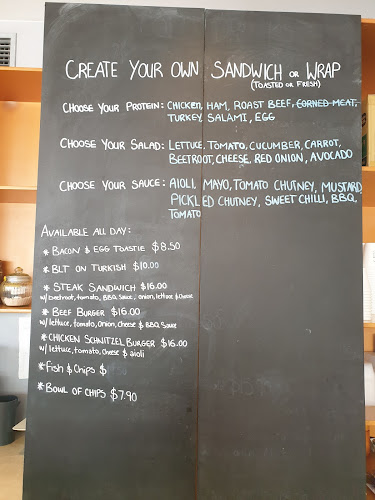 CREATE YOUR OWN SANDWICH OR WRAP
(TOASTED OR FRESH)
CHOOSE YOUR PROTEIN: CHICKEN, HAM, ROAST BEEF, CORNED MEAT,
TURKEY, SALAMI, EGG
CHOOSE YOUR SALAD: LETTUCE, TOMATO, CUCUMBER, CARROT,
BEETROOT, CHEESE, RED ONION, AVOCADO
CHOOSE YOUR SAUCE: AIOLI, MAYO, TOMATO CHUTNEY, MUSTARD
PICKLED CHUTNEY, SWEET CHILLI, BBQ,
TOMATO
AVAILABLE ALL DAY:
* BACON & EGG TOASTIE $8.50
* BLT ON TURKISH $10.00
* STEAK SANDWICH $16.00
w/ beetroot, tomato, BBQ Sauce, onion, lettuce & cheese
* BEEF BURGER $16.00
w/ lettuce, tomato, onion, cheese & BBQ Sauce
* CHICKEN SCHNITZEL BURGER $16.00
w/ lettuce, tomato, cheese & aioli
* Fish & Chips $
* BOWL OF CHIPS $7.90